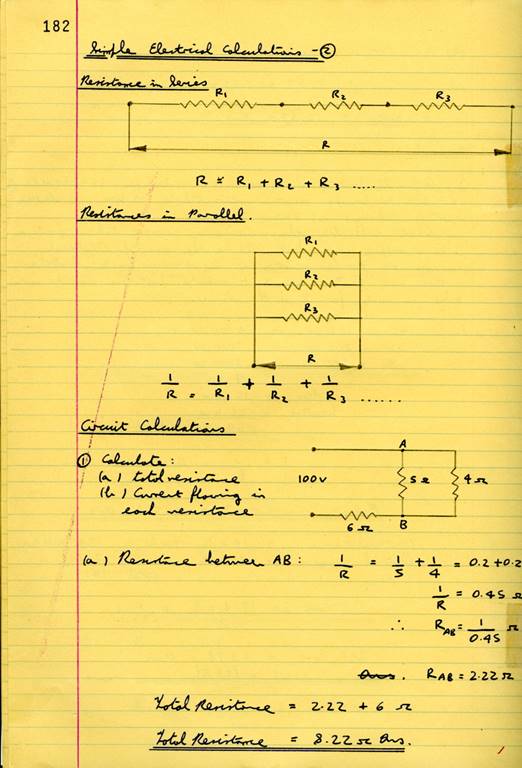 182
Simple Electrical Calculations - ②
Resistance in Series
R₁ R₂ R₃
R
R = R₁ + R₂ + R₃ .....
Resistances in Parallel.
R₁
R₂
R₃
R
1/R = 1/R₁ + 1/R₂ + 1/R₃ ......
Circuit Calculations
① Calculate:
(a) total resistance
(b) Current flowing in
each resistance
A
100v 5Ω 4Ω
6Ω B
(a) Resistance between AB: 1/R = 1/5 + 1/4 = 0.2 + 0.2
1/R = 0.45 Ω
∴ R_AB = 1/0.45 Ω
Ans. R_AB = 2.22 Ω
Total Resistance = 2.22 + 6 Ω
Total Resistance = 8.22 Ω Ans.